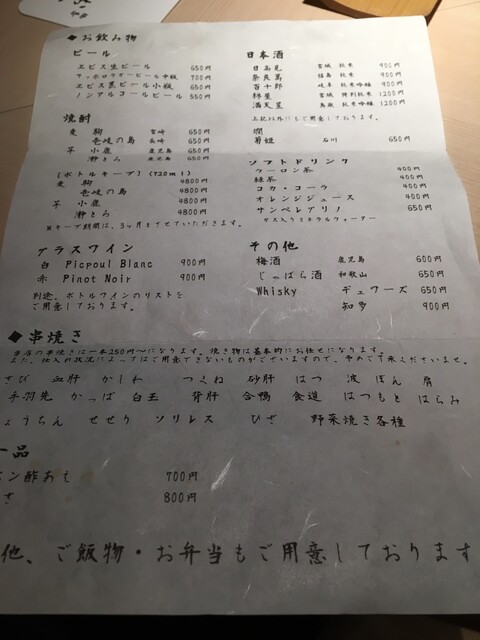 ◆お飲み物
ビール
ヱビス生ビール 650円
サッポロラガービール中瓶 700円
ヱビス黒ビール小瓶 650円
ノンアルコールビール 550円
焼酎
麦 駒 宮崎 650円
壱岐の島 長崎 650円
芋 小鹿 鹿児島 650円
瀞とろ 鹿児島 650円
(ボトルキープ)(720ml)
麦 駒 4800円
壱岐の島 4800円
芋 小鹿 4800円
瀞とろ 4800円
※キープ期間は、3ヶ月とさせていただきます。
グラスワイン
白 Picpoul Blanc 900円
赤 Pinot Noir 900円
別途、ボトルワインのリストを
ご用意しております。
日本酒
日高見 宮城 純米 900円
奈良萬 福島 純米 900円
百十郎 岐阜 純米吟醸 900円
宮城 特別純米 1200円
満天星 鳥取 純米吟醸 1200円
上記以外にもご用意しております。
燗
菊姫 石川 650円
ソフトドリンク
ウーロン茶 400円
緑茶 400円
コカ・コーラ 400円
オレンジジュース 400円
サンペレグリノ 650円
ガス入りミネラルウォーター
その他
梅酒 鹿児島 600円
じゃばら酒 和歌山 650円
Whisky デュワーズ 650円
知多 900円
◆串焼き
当店の串焼きは一本250円〜になります。焼き物は基本的にお任せになります。
また、仕入れ状況によってはご用意できないものがございますので、予めご了承くださいませ。
さび 血肝 かしわ つくね 砂肝 はつ 波 ぼん 肩
手羽先 かっぱ 白玉 背肝 合鴨 食道 はつもと はらみ
ょうちん せせり ソリレス ひざ 野菜焼き各種
一品
ン酢あえ 700円
さ 800円
他、ご飯物・お弁当もご用意しております